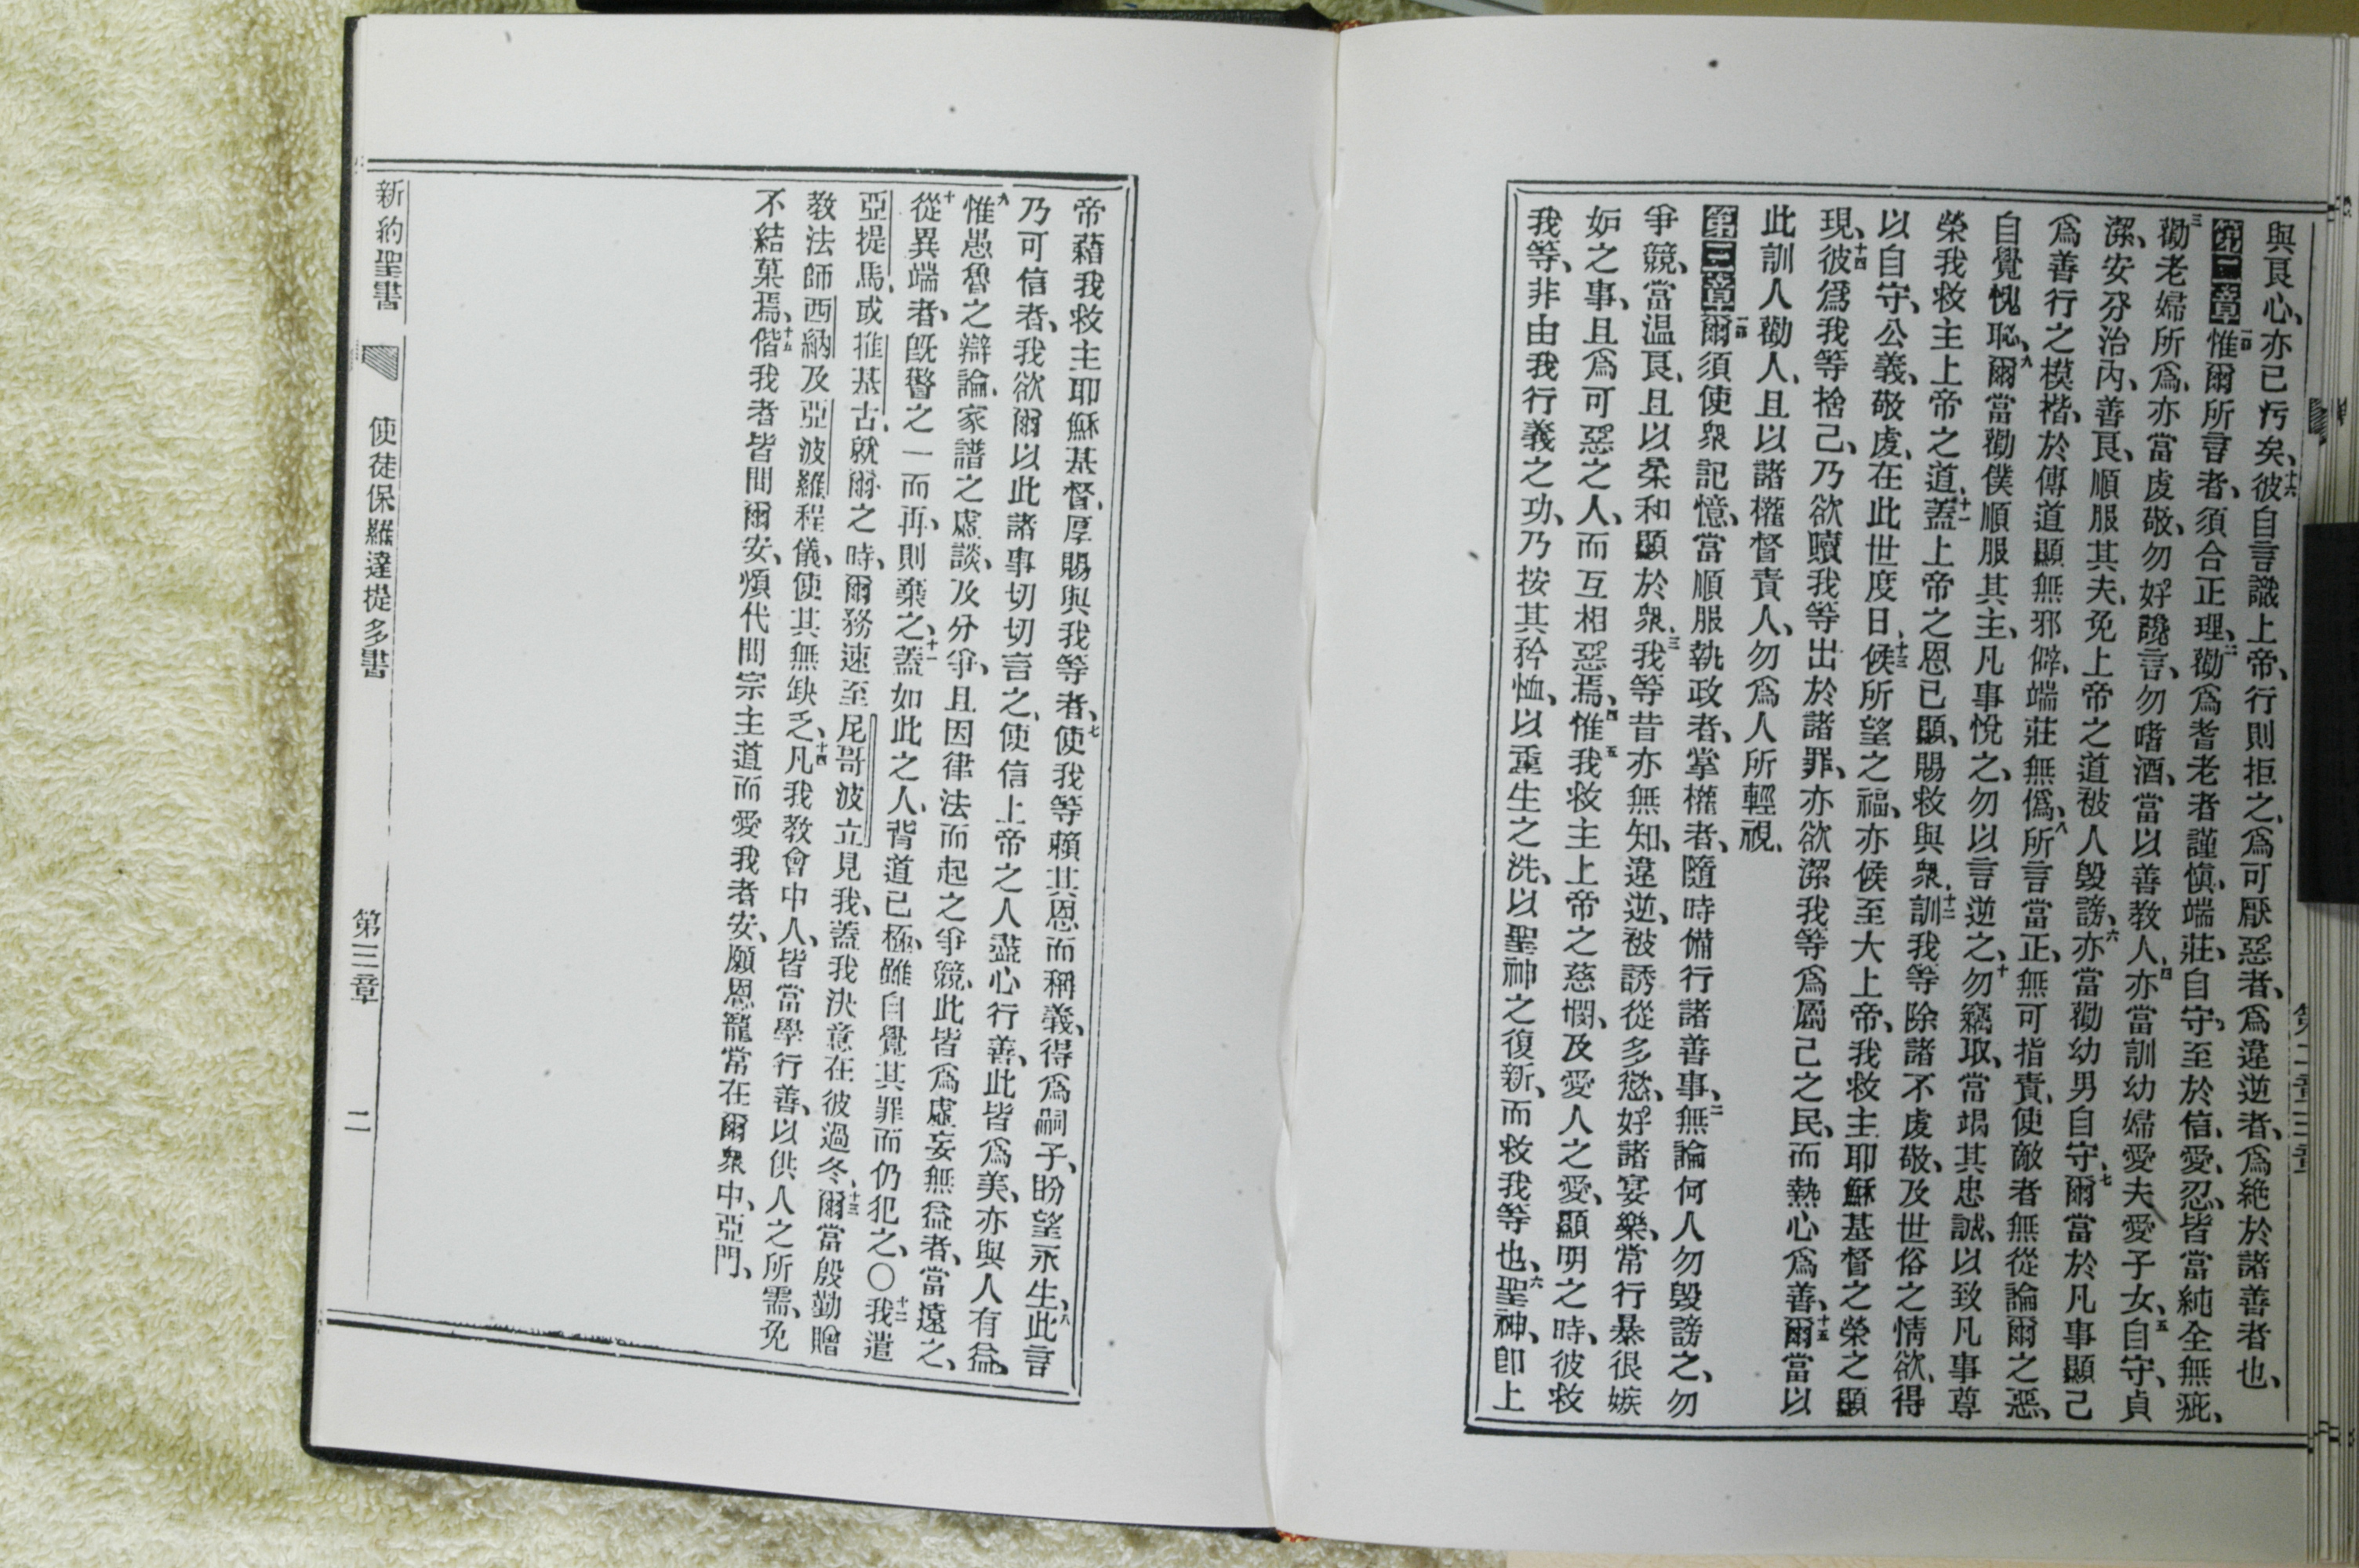 與良心、亦已污矣、十六彼自言識上帝、行則拒之、爲可厭惡者、爲違逆者、爲絶於諸善者也、
第二章一惟爾所言者、須合正理、二勸爲耆老者謹愼、端莊、自守、至於信、愛、忍、皆當純全無疵、
三勸老婦所爲、亦當虔敬、勿好讒言、勿嗜酒、當以善教人、四亦當訓幼婦愛夫愛子女、五自守、貞
潔、安分治內、善良、順服其夫、免上帝之道被人毀謗、六亦當勸幼男自守、七爾當於凡事顯己
爲善行之模楷、於傳道顯無邪僻、端莊無僞、八所言當正、無可指責、使敵者無從論爾之惡、
自覺愧恥、九爾當勸僕順服其主、凡事悅之、勿以言逆之、十勿竊取、當竭其忠誠、以致凡事尊
榮我救主上帝之道、十一蓋上帝之恩已顯、賜救與衆、十二訓我等除諸不虔敬、及世俗之情欲、得
以自守、公義、敬虔、在此世度日、十三候所望之福、亦候至大上帝、我救主耶穌基督之榮之顯
現、十四彼爲我等捨己、乃欲贖我等出於諸罪、亦欲潔我等爲屬己之民、而熱心爲善、十五爾當以
此訓人勸人、且以諸權督責人、勿爲人所輕視、
第三章一爾須使衆記憶、當順服執政者、掌權者、隨時備行諸善事、二無論何人勿毀謗之、勿
爭競、當温良、且以柔和顯於衆、三我等昔亦無知、違逆、被誘從多慾、好諸宴樂、常行暴很嫉
妒之事、且爲可惡之人、而互相惡焉、四惟五我救主上帝之慈憫、及愛人之愛、顯明之時、彼救
我等、非由我行義之功、乃按其矜恤、以重生之洗、以聖神之復新、而救我等也、六聖神、卽上
第二章 三章
帝藉我救主耶穌基督、厚賜與我等者、七使我等賴其恩而稱義、得爲嗣子、盼望永生、八此言
乃可信者、我欲爾以此諸事切切言之、使信上帝之人盡心行善、此皆爲美、亦與人有益、
九惟愚魯之辯論、家譜之虛談、及分爭、且因律法而起之爭競、此皆爲虛妄無益者、當遠之、
十從異端者、旣警之一而再、則棄之、十一蓋如此之人、背道已極、雖自覺其罪而仍犯之、〇十二我遣
亞提馬、或推基古、就爾之時、爾務速至尼哥波立見我、蓋我決意在彼過冬、十三爾當殷勤贈
教法師西納及亞波羅程儀、使其無缺乏、十四凡我教會中人、皆當學行善、以供人之所需、免
不結菓焉、十五偕我者皆問爾安、煩代問宗主道而愛我者安、願恩寵常在爾衆中、亞們、
新約聖書 使徒保羅達提多書 第三章 二